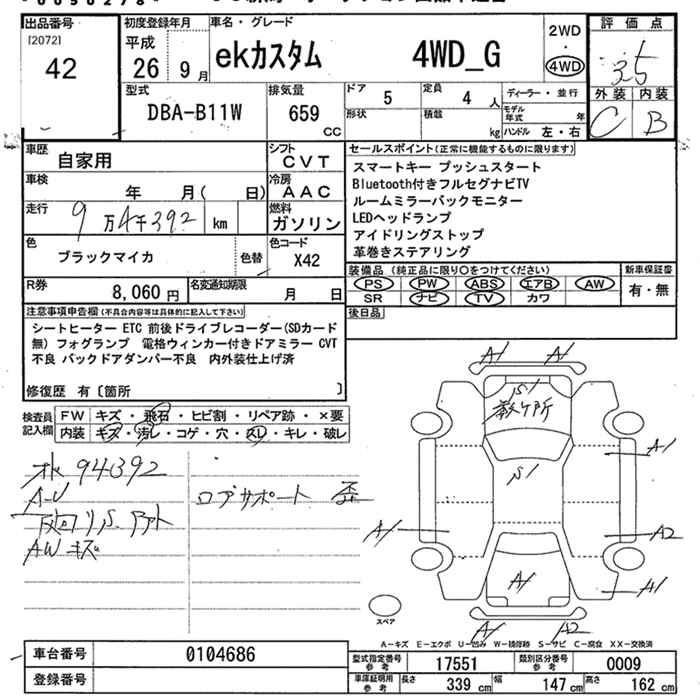 出品番号
[2072]
42
初度登録年月
平成
26 9月
車名・グレード
ekカスタム 4WD_G
2WD
・
4WD
評価点
3.5
外装 内装
C B
型式
DBA-B11W
排気量
659
CC
ドア
5
定員
4 人
ディーラー・並行
形状
積載
kg
モデル年式 年
ハンドル 左・右
車歴
自家用
シフト
CVT
車検
年 月( 日)
冷房
AAC
走行
9万4千392 km
燃料
ガソリン
色
ブラックマイカ
色替
色コード
X42
R券
8,060 円
名変通知期限
月 日
セールスポイント(正常に機能するものに限ります)
スマートキー プッシュスタート
Bluetooth付きフルセグナビTV
ルームミラーバックモニター
LEDヘッドランプ
アイドリングストップ
革巻きステアリング
装備品(純正品に限り○をつけてください)
新車保証書
PS PW ABS エアB AW
SR ナビ TV カワ
有・無
後日品
注意事項申告欄(不具合内容等は具体的に記入して下さい)
シートヒーター ETC 前後ドライブレコーダー(SDカード
無) フォグランプ 電格ウィンカー付きドアミラー CVT
不良 バックドアダンパー不良 内外装仕上げ済
修復歴 有〔箇所 〕
検査員
記入欄
FW キズ・飛石・ヒビ割・リペア跡・×要
内装 キズ・汚レ・コゲ・穴・スレ・キレ・破レ
94392
A-U
AW キズ
ロアサポート
A1 A1
S1
数ケ所
S1
A1
A1
A2
A1
A1
A1 A2
スペア
A-キズ E-エクボ U-凹み W-補修跡 S-サビ C-腐食 XX-交換済
車台番号
0104686
登録番号
型式指定番号
参考
17551
類別区分番号
参考
0009
車庫証明用
参考
長さ 339 cm 幅 147 cm 高さ 162 cm